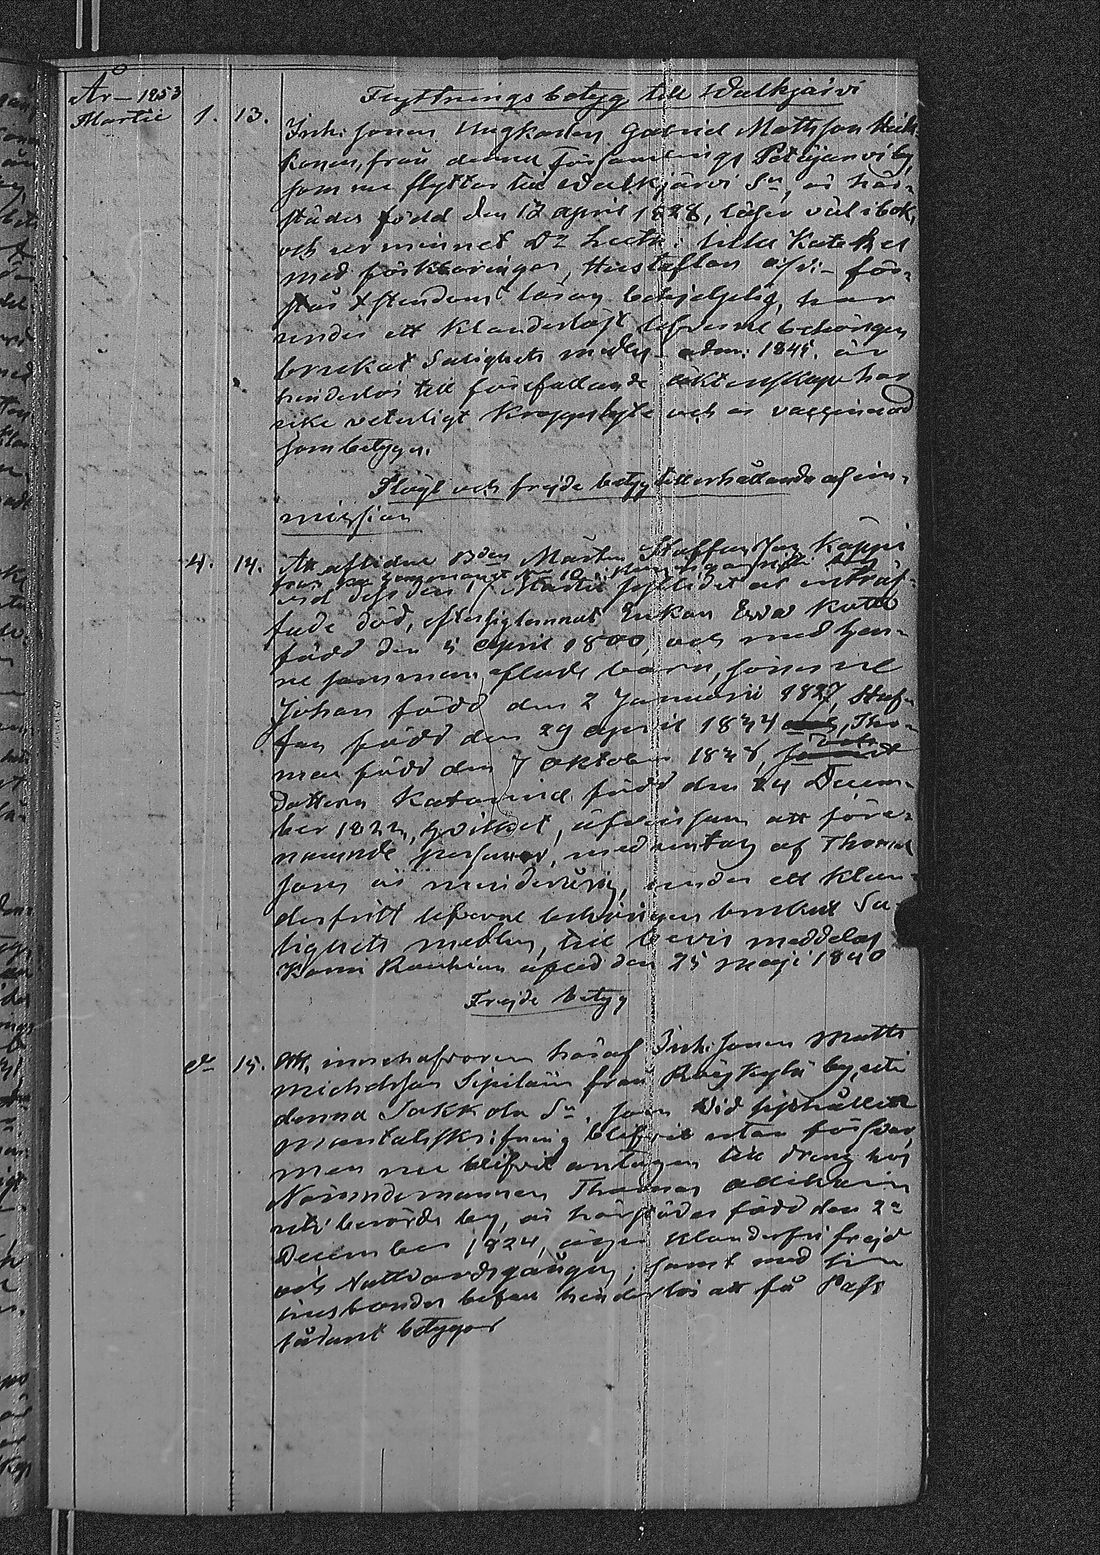 År 1853
Martii 1. 13. Flyttningsbetyg till Walkjärvi
Inh: sonen Ungkarlen Gabriel Mattsson
konen, från denna Församlings by
som nu flyttar till Walkjärvi Sn, är här-
städes född den 12 april 1828, läser väl i bok,
och ur minnet Dr Luth: lilla Kateches
med förklaringar, Hustaflan för-
står Xstendoms läran behjelpelig, har
under ett klanderlöst lefverne behörigen
brukat Salighets medlen adm: 1845. är
hinderlös till förefallande äktenskap har
icke veterligt kroppslyte och är vaccinerad
som betygas.
Slägt och frejde betyg till erhållande af im-
mission
4. 14. Att aflidne Bden Mårten Staffansson Käppi
fade död, efterlemnat Enkan Ewa
född den 5 April 1800, och med hen-
ne sammanaflade barn, sönerne
Johan född den 2 Januarii 1827, Staf-
fan född den 29 April 1834, Tho-
mas född den 7 Oktober 1838, och
dottern Katarina född den 24 Decem-
ber 1822, hvilket, äfvensom att före-
nämnde personer, med undantag af Thomas
som är minderårig, under ett klan-
derfritt lefverne behörigen brukat Sa-
lighets medlen, till bevis meddelas
den 25 Maji 1840
Frejde betyg
do 15. Att innehafvaren häraf Inh: sonen Matts
Michelsson Sipiläin från by, uti
denna Sakkola Sn. som vid sisthållen
mantalsskrifning blifvit utan försvar
men nu blifvit antagen till dräng hos
Nämndemannen Thomas
uti berörde by, är härstädes född den 2a
December 1824, äger klanderfri frejd
och Nattvardsgången, samt med sin
husbondes hinderlös att få Pass
sådant betygar